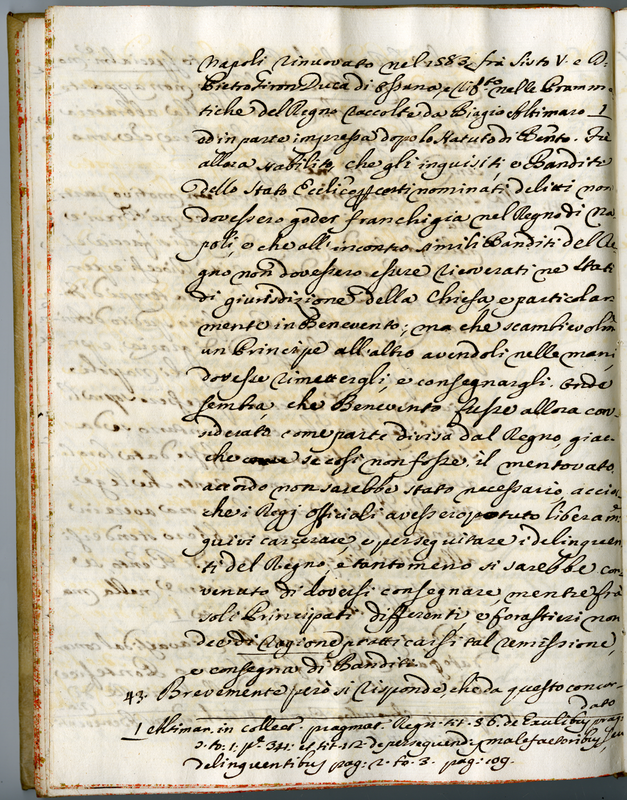 Napoli rinuovato nel 1583 frà Sisto V. e D.
Pietro Giron Duca di Ossuna, e rif.to nelle Pramm=
tiche del Regno raccolte da Biagio Altimaro 1
ed in parte impressa dopo lo Statuto di Bento. Fù
allora stabilito, che gli inquisiti, e Banditi
dello Stato Ecclico p certi nominati delitti non
dovessero goder franchigia nel Regno di Na
poli, e che all'incontro simili Banditi del Re
gno non dovessero essere ricoverati ne Stati
di giurisdizione della Chiesa, e particolar
mente in Benevento, ma che scambievolm.
un Principe all'altro avendoli nelle mani,
dovesse rimettergli, e consegnargli. Onde
sembra che Benevento fusse allora con
siderato come parte divisa dal Regno, giac
che se così non fosse, il mentovato
accordo non sarebbe stato necessario, accio
che i Reggj officiali avessero potuto liberam.
quivi carcerare, e perseguitare i delinquen
ti del Regno, e tanto meno si sarebbe con
venuto di doversi consegnare, mentre frà
soli Principati differenti, e forastieri non
de di ragione pratticarsi tal remissione,
e consegna di Banditi.
43. Brevemente però si risponde, che da questo concor
dato
1 Altimar. in collect. pragmat. Regn. tit. 36. de Exulibus pag:
2. to: 1. p. 341. et tit. 12. de persequendis malefactoribus, seu
delinquentibus pag: 2. to: 3. pag: 109.